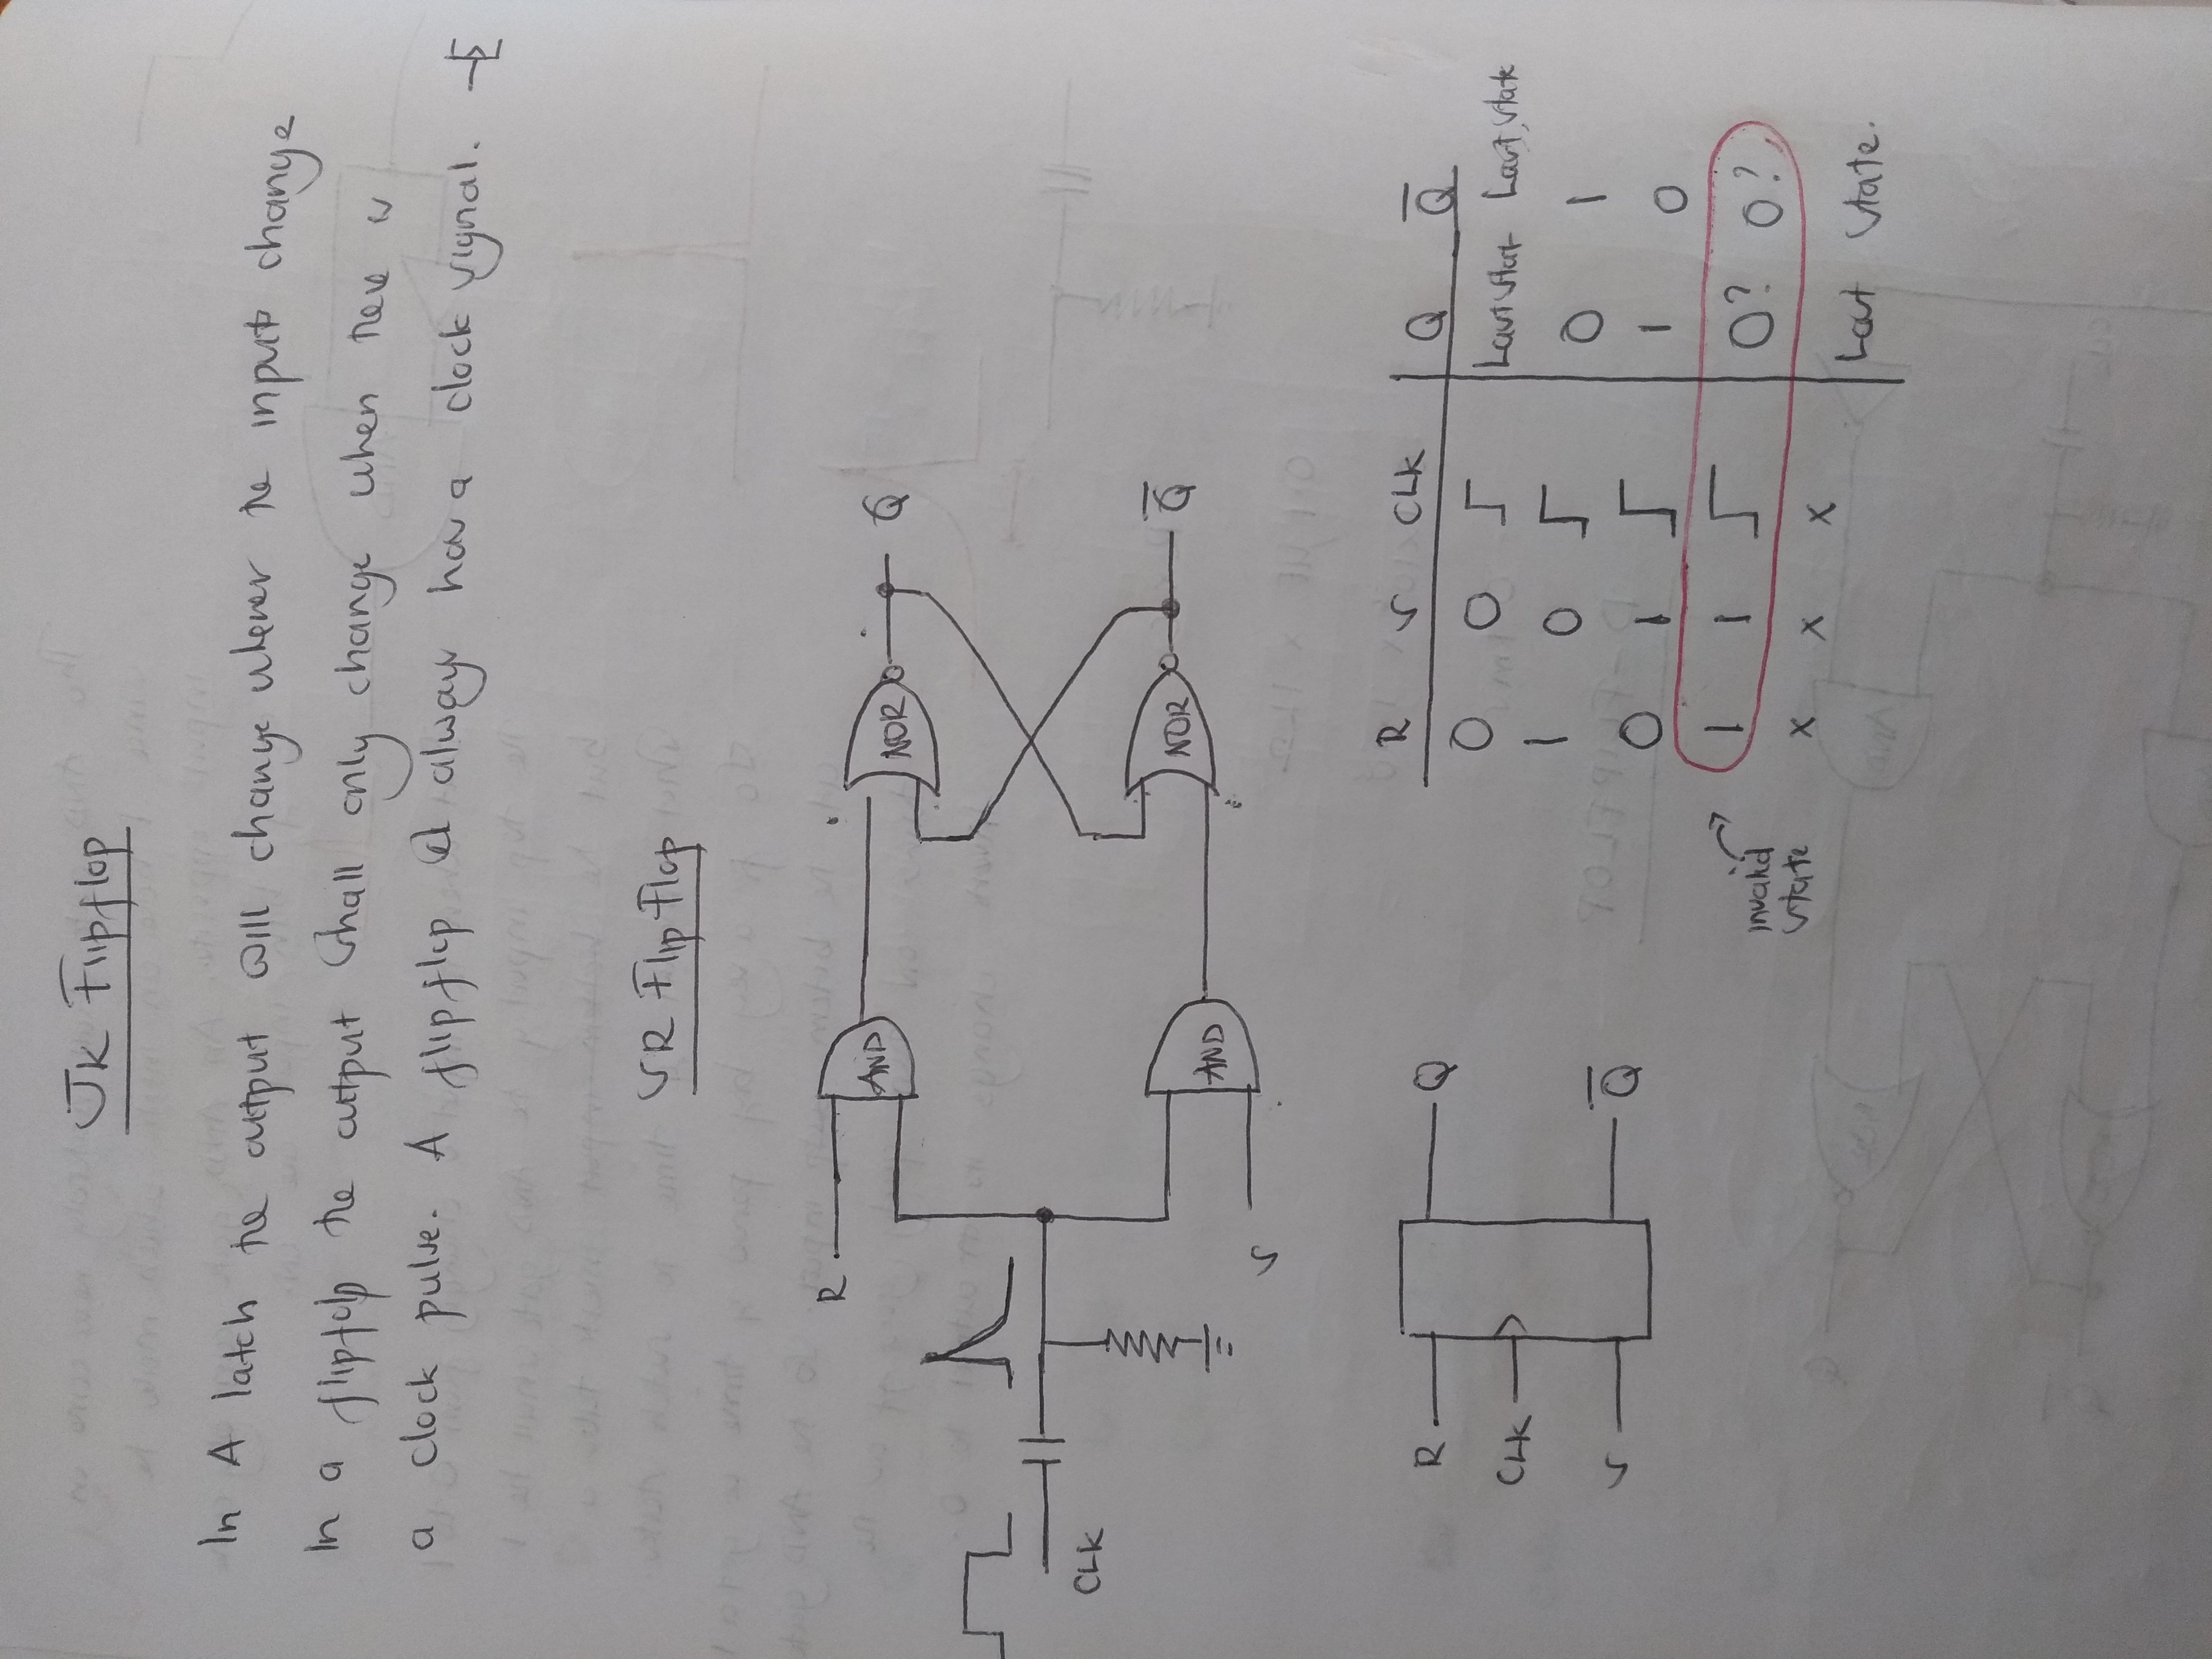 JK Flipflop
In A latch the output will change whener the input change
In a flipfolp the output Shall only change when there is
a clock pulse. A flipflop always has a clock signal.
SR FlipFlop
R
AND
NOR
Q
CLK
S
AND
NOR
Q̅
R
CLK
S
Q
Q̅
R S CLK Q Q̅
0 0 Last stat Last state
1 0 0 1
0 1 1 0
1 1 0? 0?
x x x Last state.
invalid
state